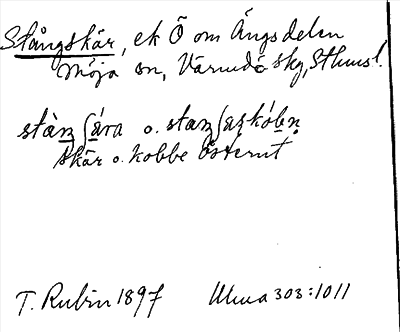 Stångskär, ek Ö om Ängsdelen
Möja sn, Värmdö skg, Sthmsl.
stàŋʃára o. staŋʃaʂkóbṇ
skär o. kobbe österut
T. Rubin 1897 Uma 303:1011